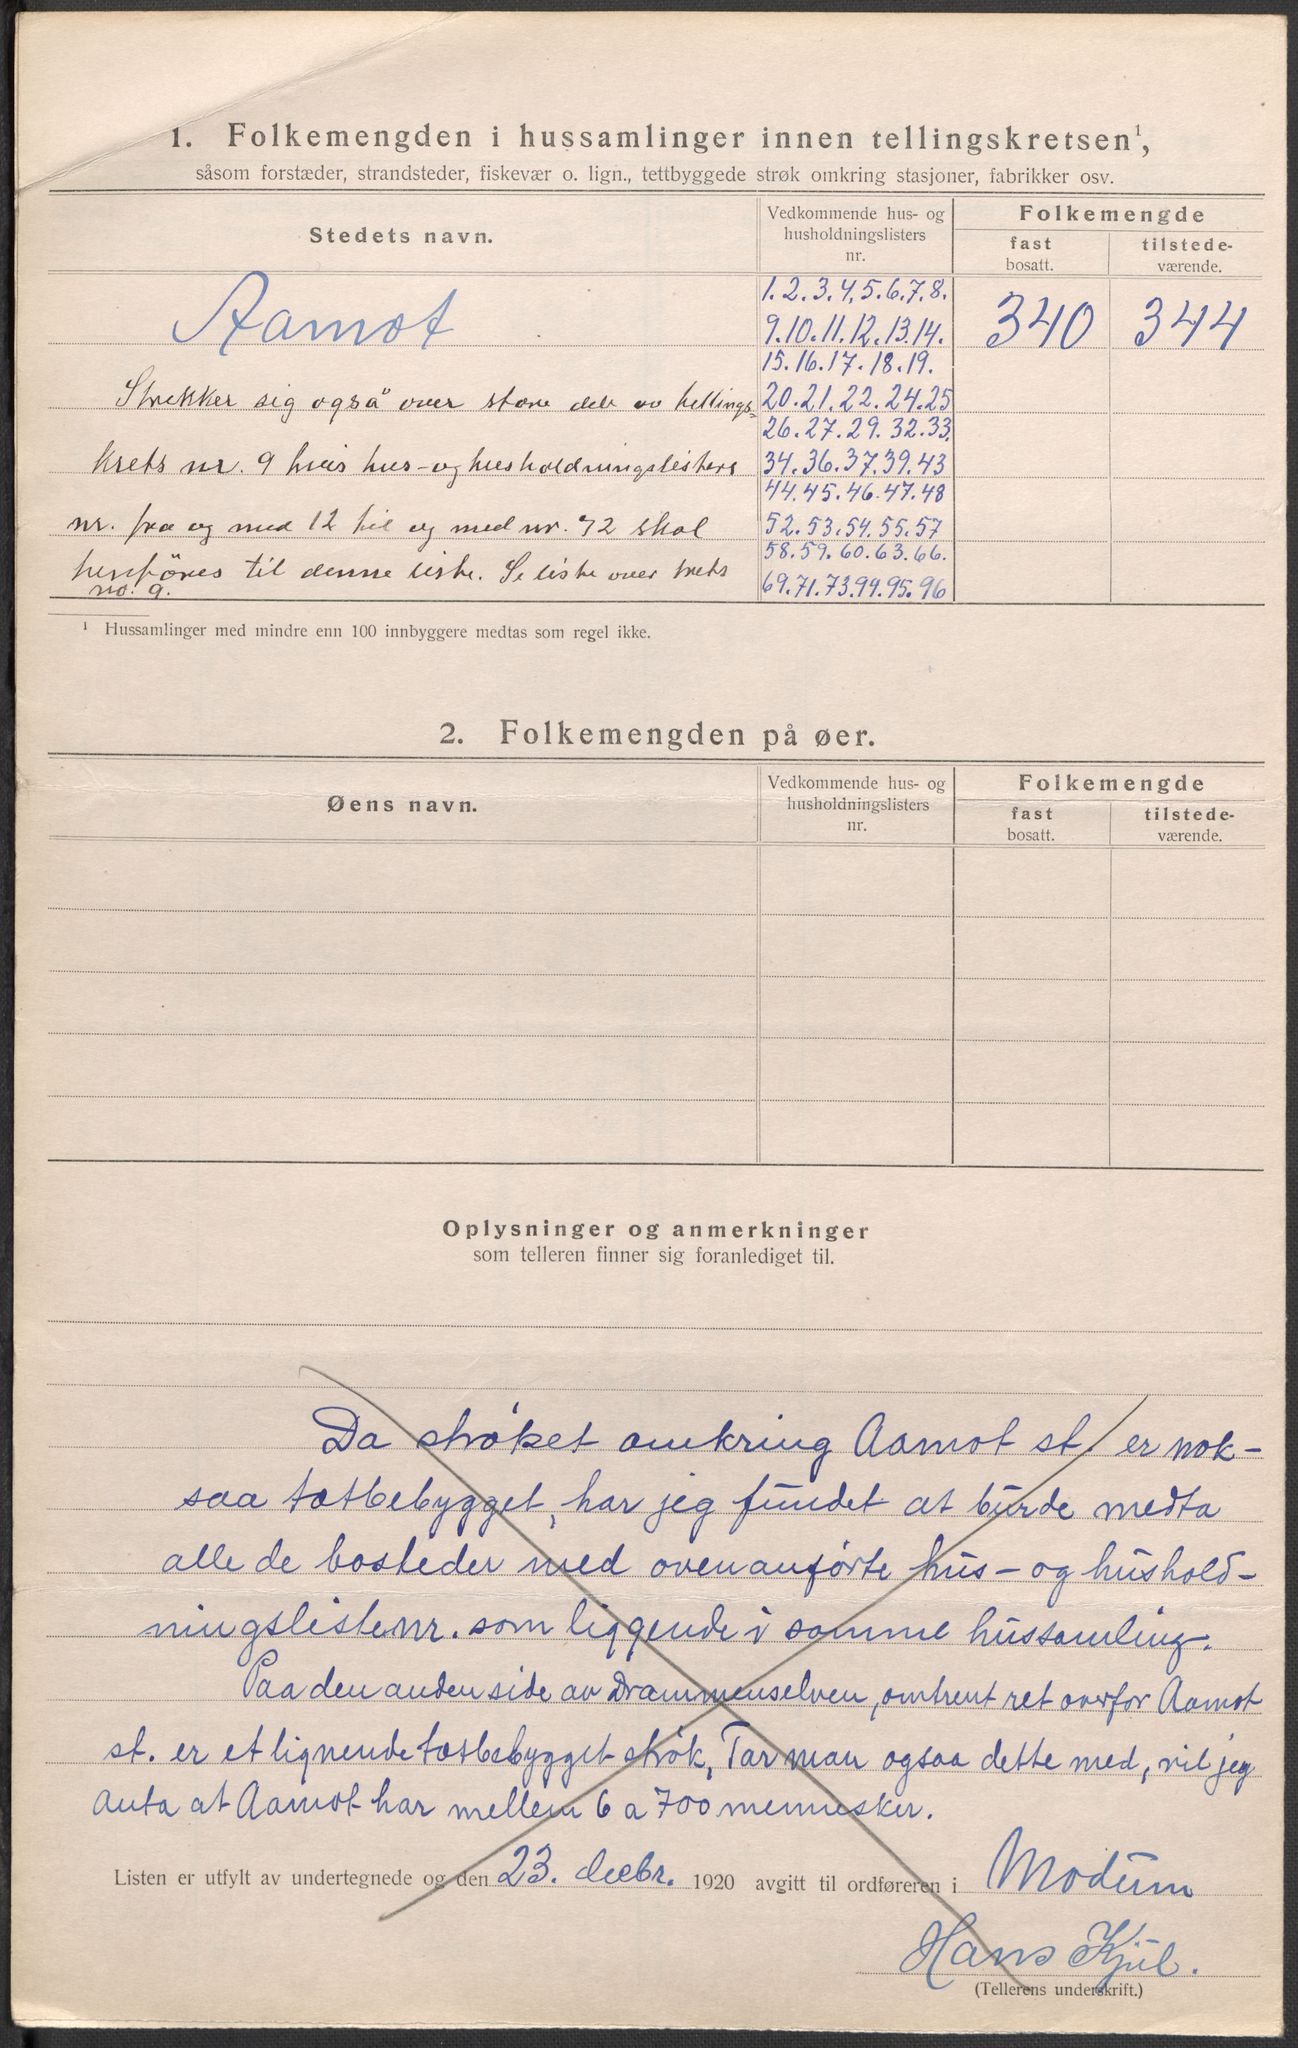 1. Folkemengden i hussamlinger innen tellingskretsen¹,
såsom forstæder, strandsteder, fiskevær o. lign., tettbyggede strøk omkring stasjoner, fabrikker osv.
Stedets navn.
Vedkommende hus- og husholdningslisters nr.
Folkemengde
fast bosatt.
tilstede- værende.
Aamot
1. 2. 3. 4. 5. 6. 7. 8.
9. 10. 11. 12. 13. 14.
340
344
15. 16. 17. 18. 19.
Strekker sig også over store dele av tellings-
20. 21. 22. 24. 25
26. 27. 29. 32. 33.
krets nr. 9 hvis hus- og husholdningslisters
34. 36. 37. 39. 43
44. 45. 46. 47. 48
nr. fra og med 12 til og med nr. 72 skal
52. 53. 54. 55. 57
58. 59. 60. 63. 66.
henføres til denne liste. Se liste over krets
no. 9.
69. 71. 73. 94. 95. 96
¹ Hussamlinger med mindre enn 100 innbyggere medtas som regel ikke.
2. Folkemengden på øer.
Øens navn.
Vedkommende hus- og husholdningslisters nr.
Folkemengde
fast bosatt.
tilstede- værende.
Oplysninger og anmerkninger
som telleren finner sig foranlediget til.
Da strøket omkring Aamot st. er nok-
saa tætbebygget, har jeg fundet at burde medta
alle de bosteder med ovenanførte hus- og hushold-
ningslistenr. som liggende i samme hussamling.
Paa den anden side av Drammenselven, omtrent ret overfor Aamot
st. er et lignende tætbebygget strøk, Tar man ogsaa dette med, vil jeg
anta at Aamot har mellem 6 a 700 mennesker.
Listen er utfylt av undertegnede og den 23. decbr. 1920 avgitt til ordføreren i Modum
Hans Kjül.
(Tellerens underskrift.)